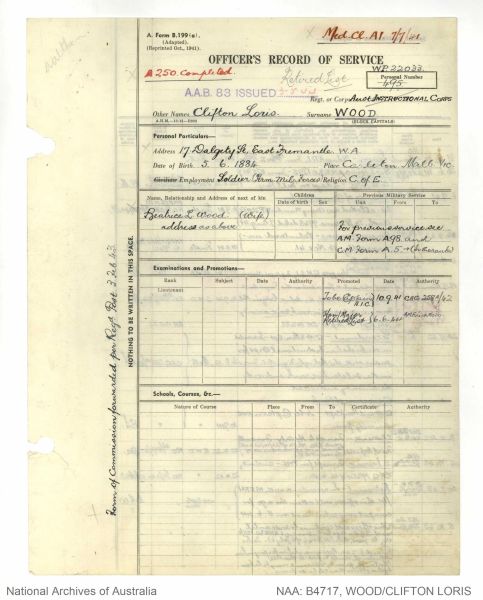 A. Form B.199(a).
(Adapted).
(Reprinted Oct., 1941)
Med Cl. A1 7/7/41
OFFICER'S RECORD OF SERVICE
A250. Completed.
Retired List
WP22033.
Personal Number
495
A.A.B. 83 ISSUED
Regt. or Corps Aust INSTRUCTIONAL CORPS
Other Names Clifton Loris. Surname WOOD
(BLOCK CAPITALS)
Personal Particulars—
Address 17 Dalgety St, East Fremantle W.A.
Date of Birth 5. 6. 1884 Place
Civilian Employment Soldier (Perm. Mil. Forces) Religion C. of E.
Name, Relationship and Address of next of kin
Children
Date of birth Sex
Previous Military Service
Unit From To
Beatrice L Wood (Wife)
address as above
For previous service see
A.M. Form A98. and
C.M. Form A.5
Examinations and Promotions—
Rank Subject Date Authority Promoted to Date Authority
Lieutenant
To be Captain 10.9.41
A.I.C.
Hon/Major 6.6.44
Retired List
Schools, Courses, &c.—
Nature of Course Place From To Certificate Authority
NOTHING TO BE WRITTEN IN THIS SPACE.
Form of Commission forwarded per Reg'd Post 3 Feb 43.
National Archives of Australia
NAA: B4717, WOOD/CLIFTON LORIS